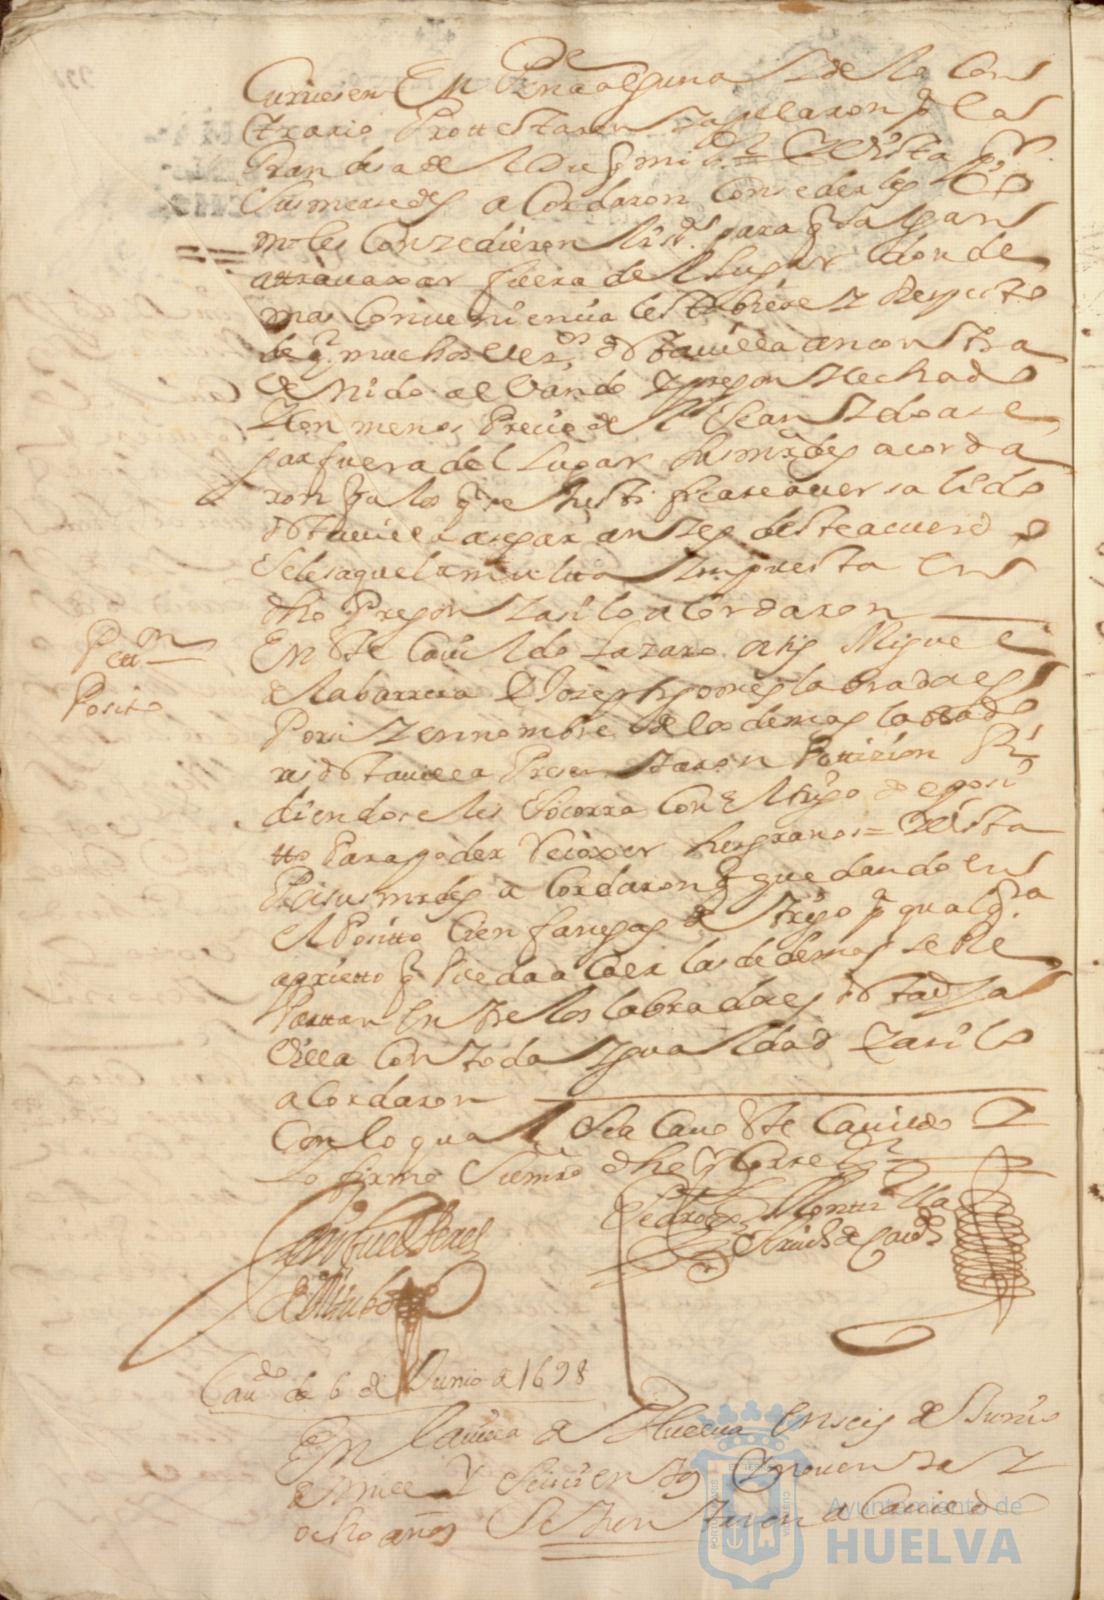 curriesen En Pena alguna Y de lo Con
trario Prottestaron Y apelaron pa. los
Gran desa del Duq mi sr = Y Vista Pr.
Sus mersedes acordaron Consederles
mo les Conzedieron liza. para q salgan
attrauaxar fuera del lugar donde
mas Conueniencia les tubiere Y Respecto
de q. muchos vezos. desta uilla an contra
Uenido al Vando Y pregon Hechado
Y en menos Precio del Sean Ydo a se
gar fuera del lugar sus mrdes acorda
ron q a los q se Justificare auer salido
desta uilla a segar antes deste acuerdo
Se les saque la multa Ynpuesta En
dho Pregon Y asi lo acordaron
Pettn
Posito
En Este Cauildo Lazaro Miguel
de la barrera Y Joseph gomes labradores
Por si Y en nombre de los demas labrado
res desta uilla Presentaron Pettizion Pi
diendo se les Socorra Con el trigo del posi
tto Para poder Recoxer sus granos = Y Vista
Por sus mrdes acordaron q quedando en
el Positto Cien fanegas de trigo pa qualqra
aprietto q Pueda acaer las de demas se Re
Parttan Entre los labradores desta dha
Villa Con toda Ygualdad Y asi lo
acordaron
Con lo qual Se acauo Este Cauildo Y
Lo firmo Su mrd dho Sr Corregr
Pedro Montilla
Scriuo de Cauildo
Cauo. de 6 de Junio de 1698
En la uilla de Huelua En seis de Junio
de mill Y Seiscientos Y nouenta Y
ocho años Se Juntaron a Cauildo
Ayuntamiento de
HUELVA